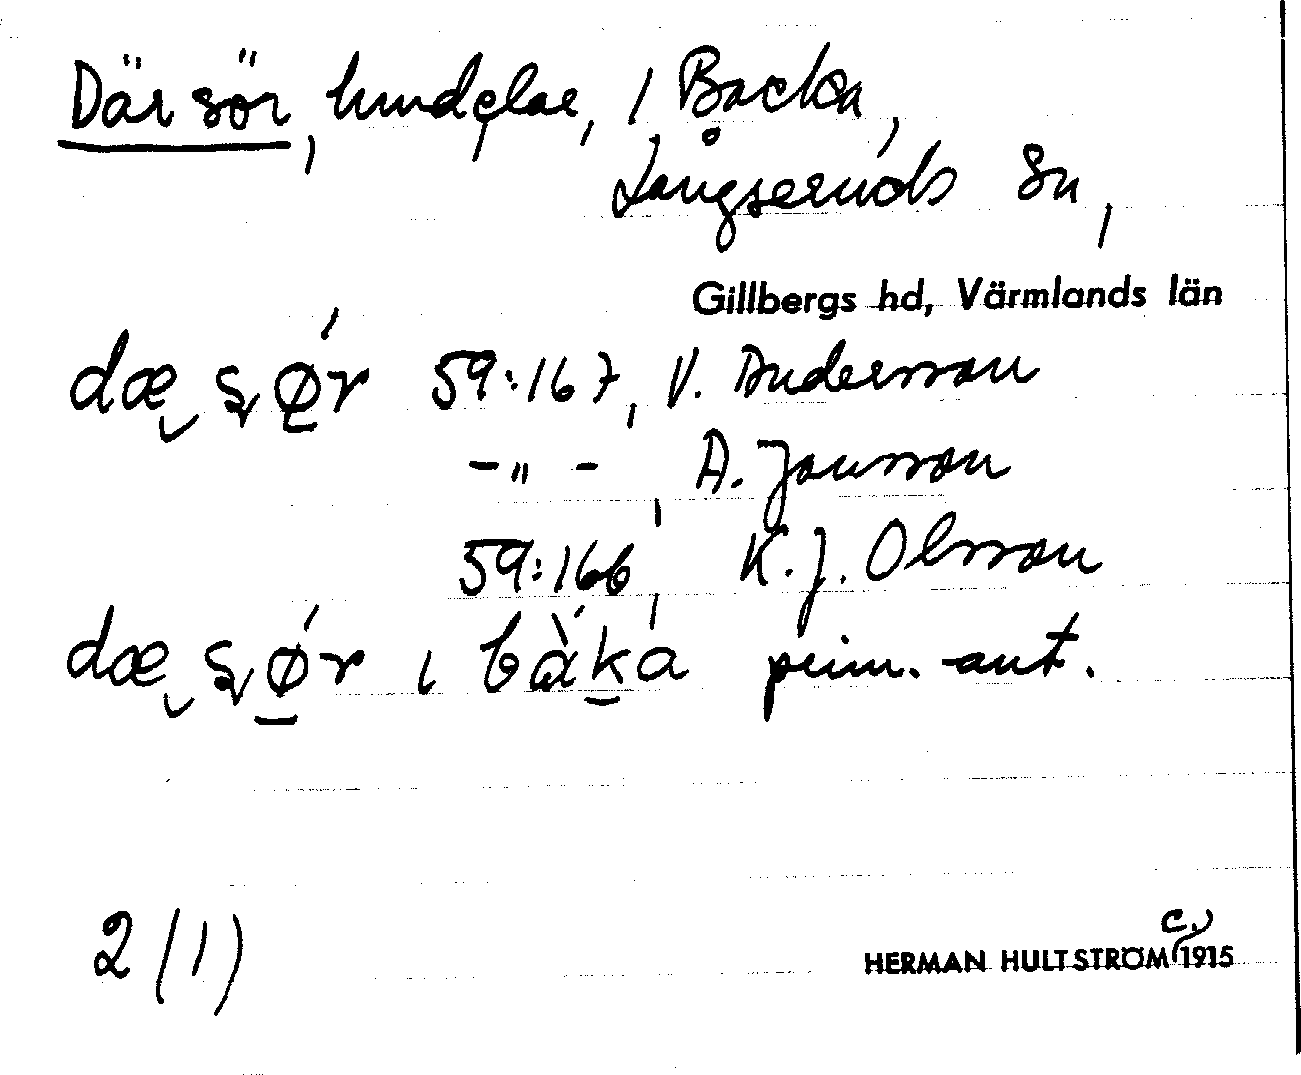 Där sör, lundelar, i Backa,
Långseruds sn,
Gillbergs hd, Värmlands län
dæ sør 59:167, V. Andersson
-"-, A. Jonsson
59:166, K.J. Olsson
dæ sør i bàka prim.-ant.
2 (1)
HERMAN HULTSTRÖM c. 1915